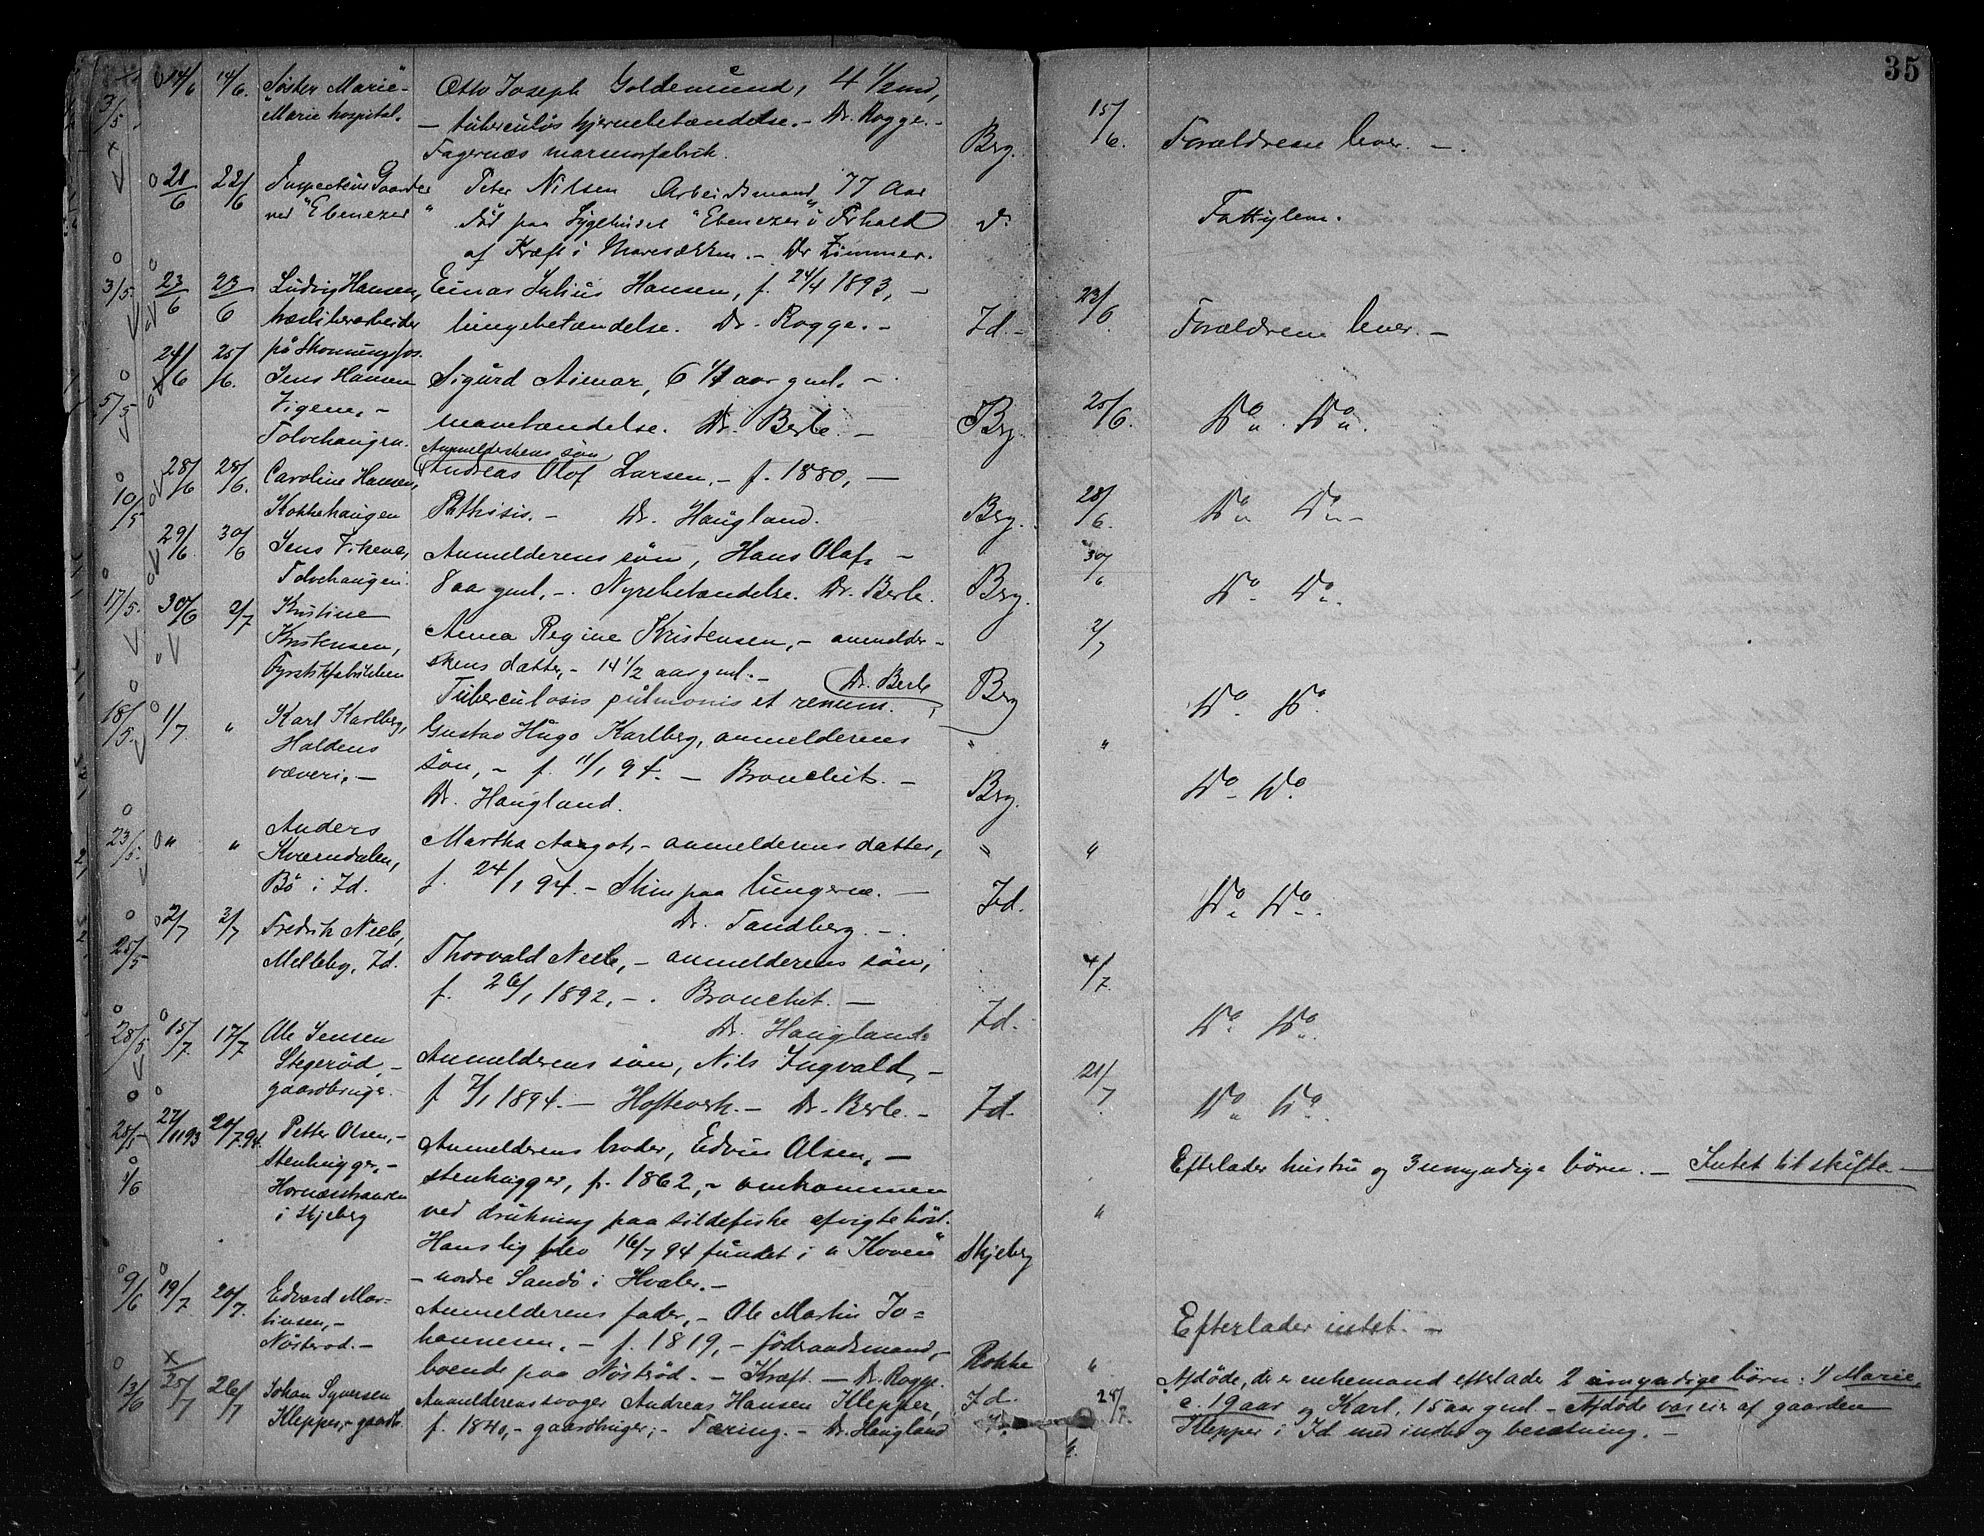 35
3/5 14/6 14/6. Søster Marie Otto Joseph Goldemund, 4 1/2 md,
"Marie hospital. – tuberculøs hjernebetændelse. – Dr. Rogge. –
Fagernæs marmorfabrik. Berg. 15/6. Forældrene lever. –
21/6 22/6 Inspecteur Gaarder Peter Nilsen Arbeidsmand, 77 Aar
ved "Ebenezer" Død paa Sygehuset "Ebenezer" i Frhald d.
af Kræft i Mavesækken. – Dr Zimmer. Fattiglem.
3/5. 23/6 23/6 Ludvig Hansen, Einar Julius Hansen, f. 24/4 1893, –
træsliberarbeider lungebetændelse. Dr. Rogge. – Id. – 23/6 Forældrene lever. –
på Skonningsfos.
5/5 24/6 25/6. Jens Hansen Sigurd Aimar, 6 1/4 aar gml. –
Vigene, – mavebetændelse. Dr. Berle. – Berg. 25/6 Do. Do.
Tolvehaugen. Anmelderskens søn
10/5 28/6 28/6. Caroline Hansen, Andreas Olof Larsen, – f. 1880, –
Kokkehaugen Pthisis. – Dr. Haugland. Berg. 28/6. Do Do –
29/6 30/6 Jens Vikene, Anmelderens søn, Hans Olaf, –
Tolvehaugen. 8 aar gml, –. Nyrebetændelse. Dr. Berle. Berg. 30/6 Do. Do.
17/5. 30/6 2/7 Kristine
Kristensen, Anna Regine Kristensen, – anmelder–
Fyrstikfabrikken skens datter, – 14 1/2 aar gml. – Dr. Berle 2/7
Tuberculosis pulmonis et renum. Berg Do. Do.
18/5. 1/7 " Karl Karlberg, Gustav Hugo Karlberg, anmelderens " "
Haldens søn, – f. 11/1 94. – Bronchit. –
væveri, – Dr. Haugland. Berg. Do – Do.
23/5. " " Anders
Kværndalen, Martha Aagot, – anmelderens datter, " "
Bö i Id. f. 24/1 94. – Slim paa lungerne. – Id. Do. Do.
Dr. Tandberg. –.
25/5 2/7 3/7 Fredrik Neeb,
Melleby, Id. Thorvald Neeb, – anmelderens søn, 4/7.
f. 26/1 1892, –. Bronchit. –
Dr. Haugland. Id. Do. Do.
28/5 15/7. 17/7 Ole Jensen
Stegerød, – Anmelderens søn, Nils Ingvald, –
gaardbruger. f 7/1 1894. – Hofteverk. – Dr. Berle. – Id. 21/7. Do. Do.
28/5 27/11 93 20/7.94. Petter Olsen, – Anmelderens broder, Edvin Olsen, –
Stenhugger, – stenhugger, f. 1862, – omkommen Efterlader hustru og 3 umyndige børn. – Intet til skifte. –
1/6 Hornæsstranden ved drukning paa sildefiske afvigte høst.
i Skjeberg Hans lig blev 16/7 94 fundet i "Koven" Skjeberg "
– nordre Sandö i Hvaler. –
9/6 19/7 20/7. Edvard Mar–
tinsen, – Anmelderens fader, – Ole Martin Jo=
Nøsterød. – hannesen, – f. 1819, – föderaadsmand, – Efterlader intet. –
boende paa Nøströd. – Kræft. – Dr. Rogge. Rokke "
13/6 25/7 26/7 Johan Syversen Anmelderens svoger Andreas Hansen Klepper, Id. 28/7. Afdöde, der er enkemand efterlader 2 umyndige børn: 1) Marie,
Klepper, – gaardb. f. 1840, – gaardbruger, – Tæring. – Dr. Haugland c. 19 aar og Karl, 15 aar gml – Afdöde var eier af gaarden
Klepper i Id med indbo og besætning. –